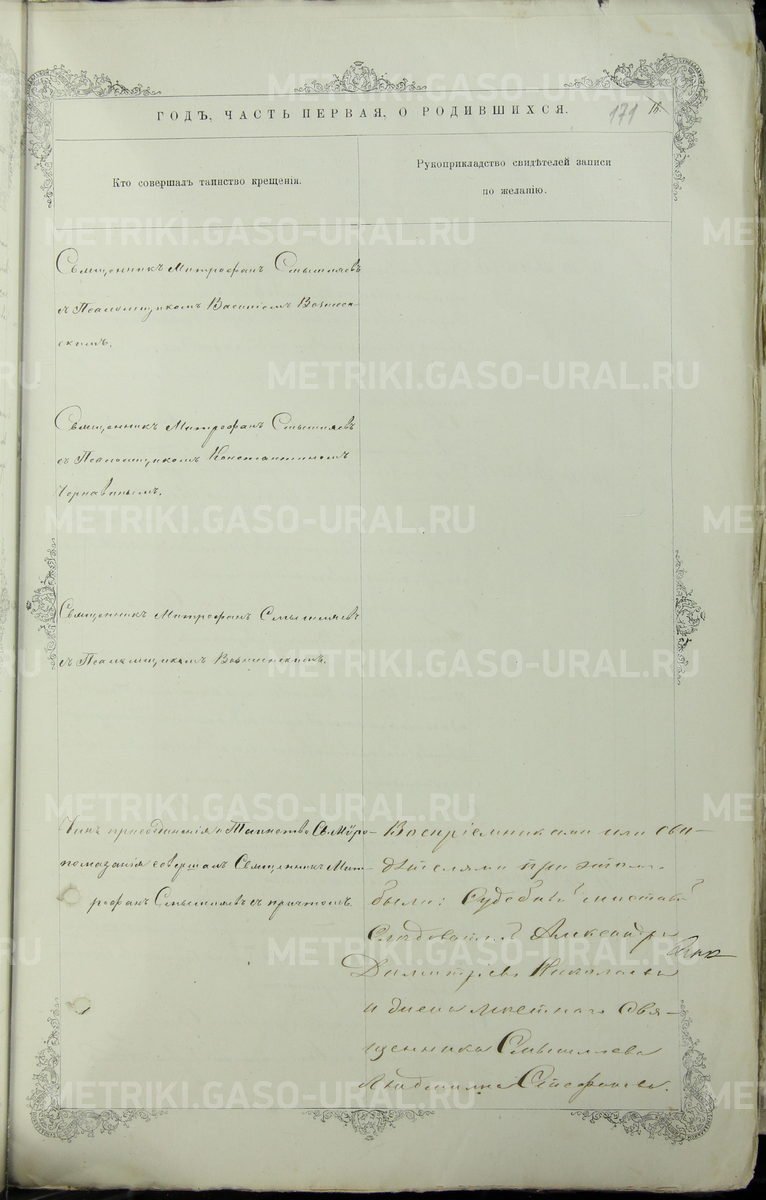 METRIKI.GASO-URAL.RU
ГОДЪ, ЧАСТЬ ПЕРВАЯ, О РОДИВШИХСЯ.
171
Кто совершалъ таинство крещенія.
Рукоприкладство свидѣтелей записи
по желанію.
Священникъ Митрофанъ Смышляевъ
съ Псаломщикомъ Василіемъ Вознесен-
скимъ.
Священникъ Митрофанъ Смышляевъ
съ Псаломщикомъ Константиномъ
Чернавинымъ.
Священникъ Митрофанъ Смышляевъ
съ Псаломщикомъ Вознесенскимъ.
Чинъ присоединенія и Таинство Св. Мѵро-
помазанія совершалъ Священникъ Мит-
рофанъ Смышляевъ съ причтомъ.
Воспріемниками или сви-
дѣтелями при этомъ
были: Судебный
Слѣдователь Александръ
Димитріевъ Николаевъ
и жена мѣстнаго Свя-
щенника Смышляева
Стефанова.